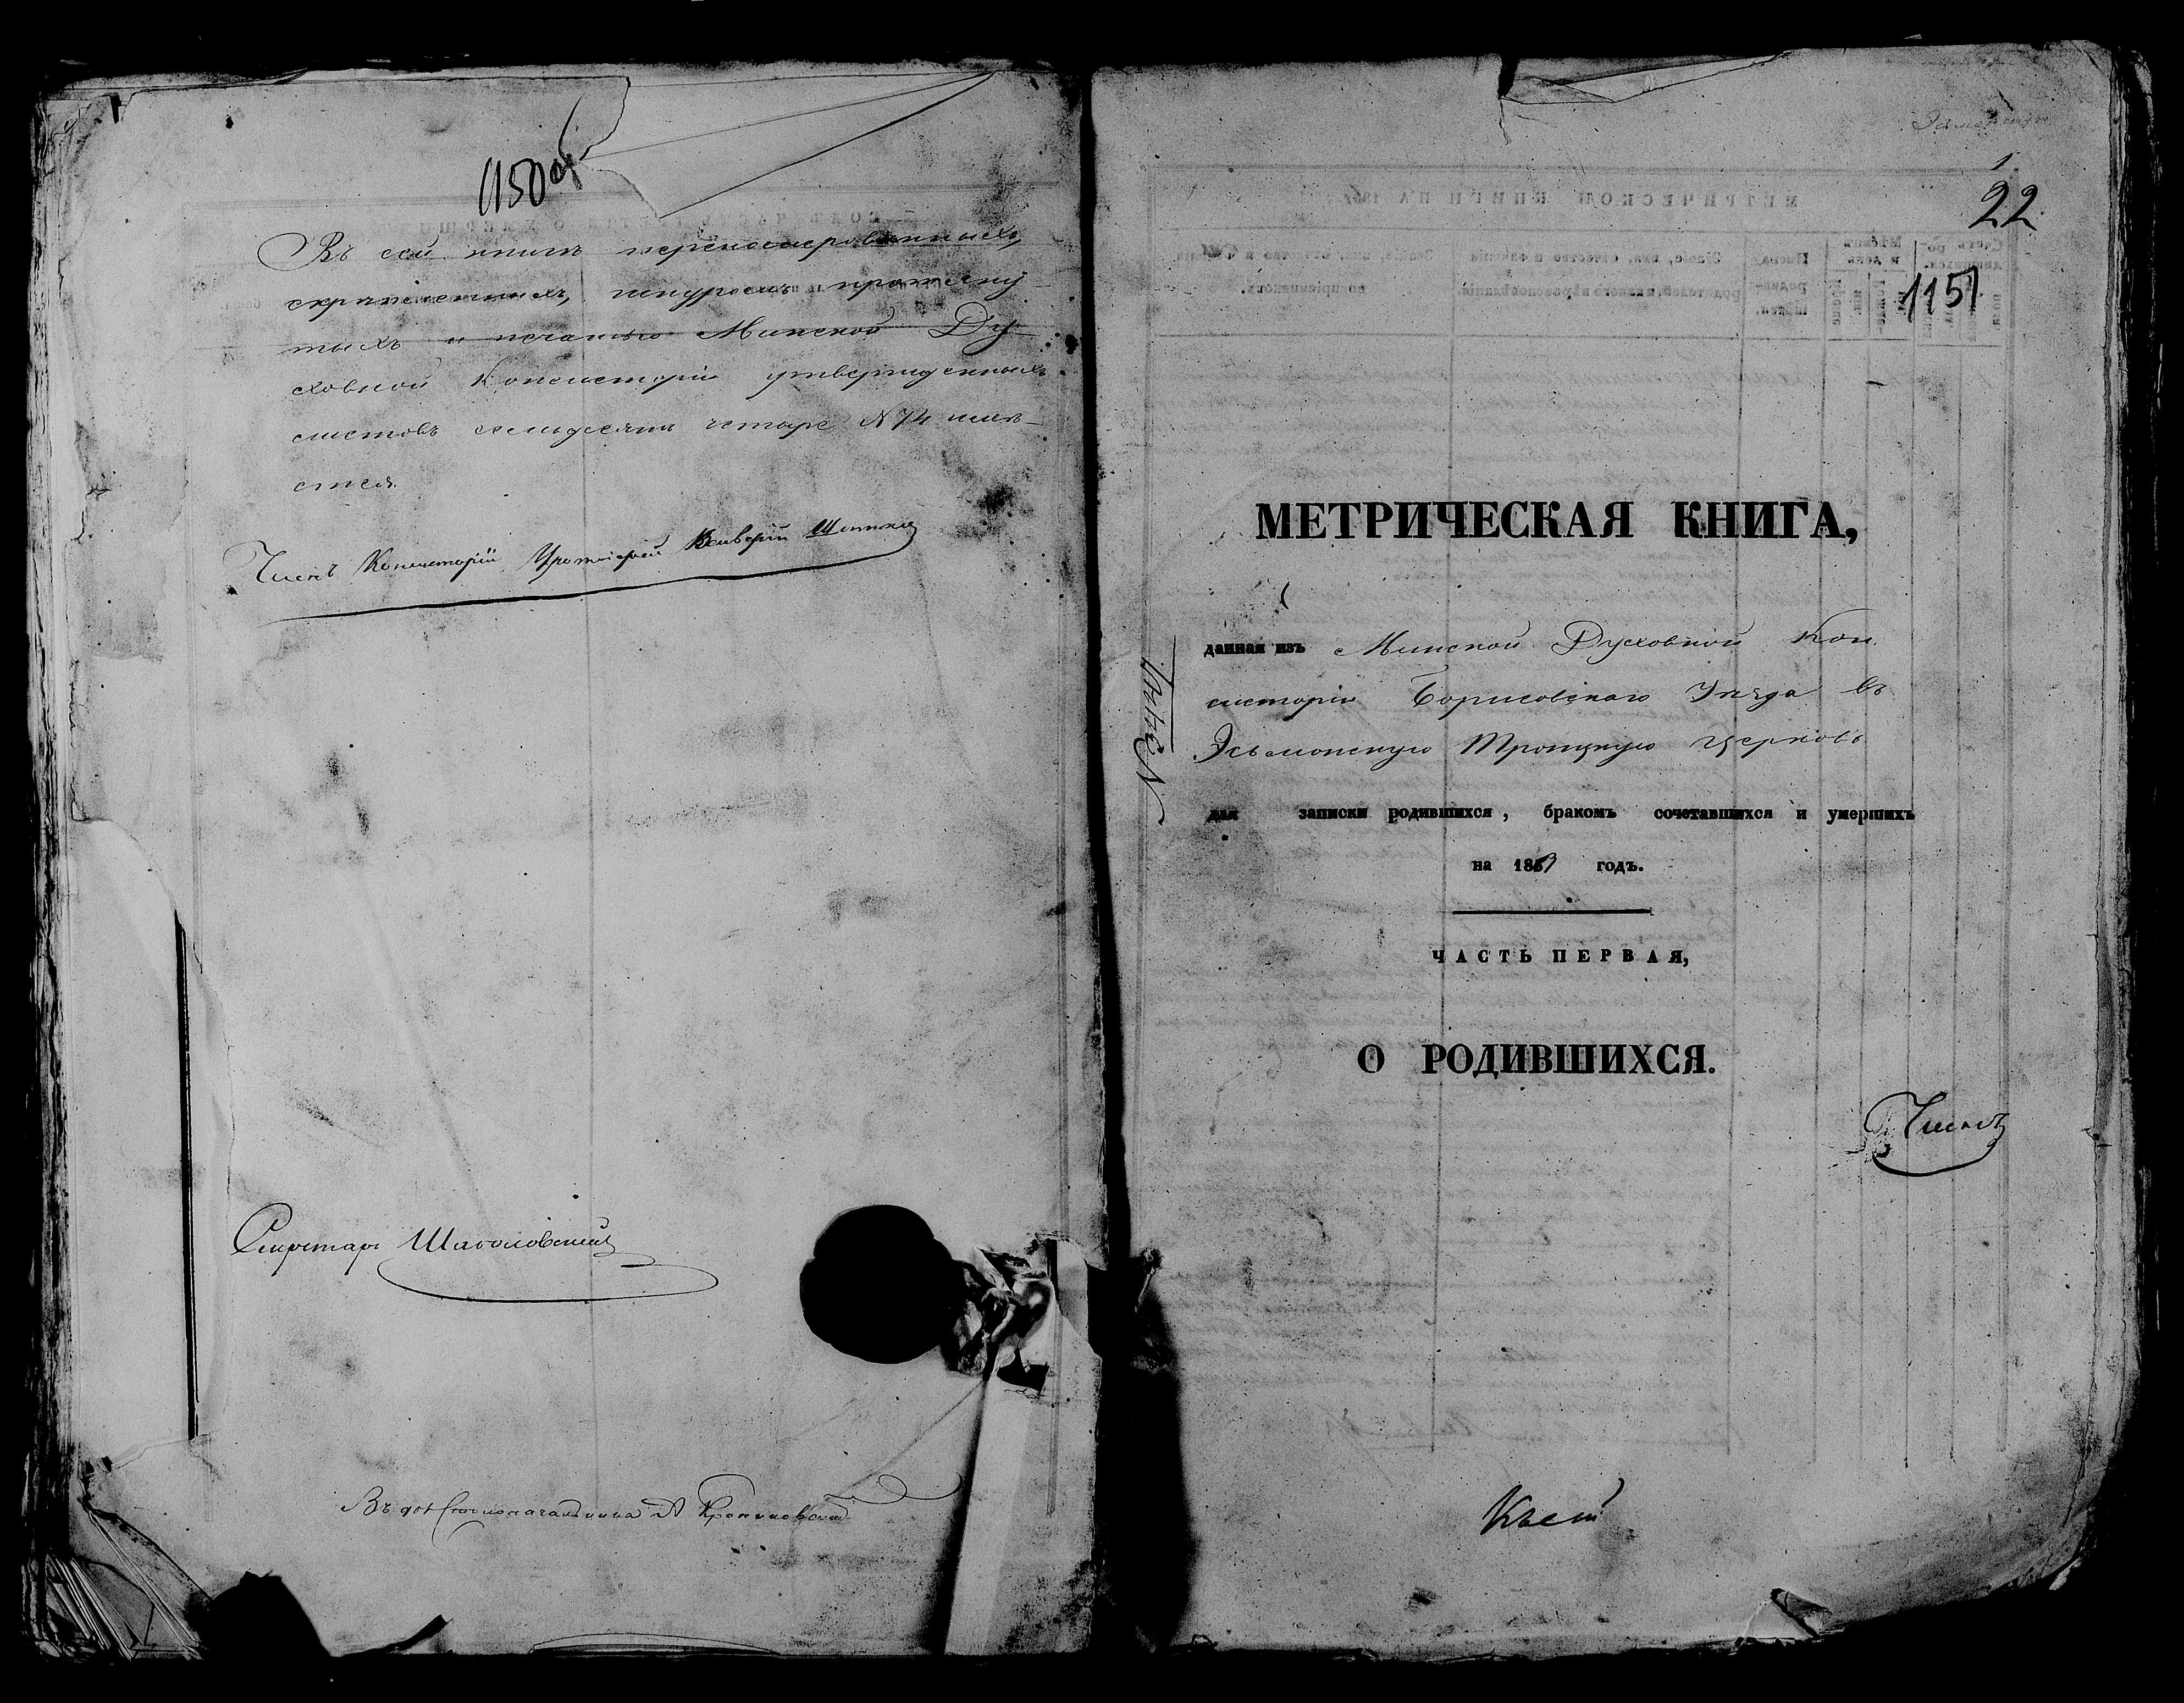 1150 об
Въ сей книгѣ перенумерованныхъ,
скрѣпленныхъ, шнуромъ протяну-
тыхъ и печатью Минской Ду-
ховной Консисторіи утвержденныхъ
листовъ семьдесятъ четыре N 74 имѣ-
ется.
Членъ Консисторіи Протоіерей
Секретарь
Въ дол Столоначальника А
1
22
1151
МЕТРИЧЕСКАЯ КНИГА,
данная изъ Минской Духовной Кон
систоріи Борисовскаго Уѣзда въ
Эсьмонскую Троицкую церковь
для записки родившихся, бракомъ сочетавшихся и умершихъ
на 186 годъ.
ЧАСТЬ ПЕРВАЯ,
О РОДИВШИХСЯ.
Членъ
Къ сей